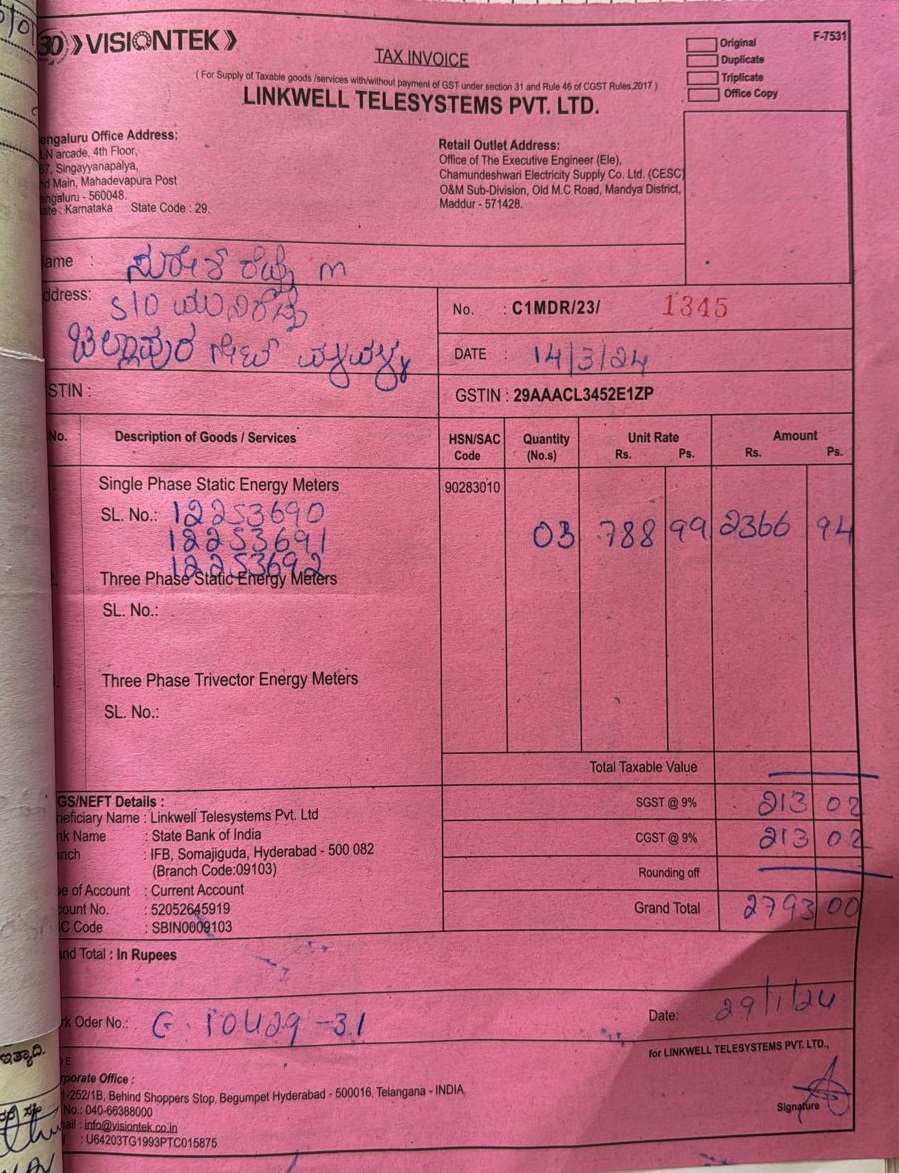 30 VISIONTEK
TAX INVOICE
( For Supply of Taxable goods /services with/without payment of GST under section 31 and Rule 46 of CGST Rules,2017 )
LINKWELL TELESYSTEMS PVT. LTD.
Original
Duplicate
Triplicate
Office Copy
F-7531
engaluru Office Address:
N arcade, 4th Floor,
7, Singayyanapalya,
d Main, Mahadevapura Post
engaluru - 560048.
ate : Karnataka State Code : 29.
Retail Outlet Address:
Office of The Executive Engineer (Ele),
Chamundeshwari Electricity Supply Co. Ltd. (CESC)
O&M Sub-Division, Old M.C Road, Mandya District,
Maddur - 571428.
ame : ಸುರೇಶ್ m
ddress: S/O
No. : C1MDR/23/ 1345
DATE : 14/3/24
STIN :
GSTIN : 29AAACL3452E1ZP
No. Description of Goods / Services HSN/SAC Code Quantity (No.s) Unit Rate Rs. Ps. Amount Rs. Ps.
Single Phase Static Energy Meters 90283010
SL. No.: 12253690
12253691 03 788 99 2366 94
12253692
Three Phase Static Energy Meters
SL. No.:
Three Phase Trivector Energy Meters
SL. No.:
Total Taxable Value
SGST @ 9% 213 02
CGST @ 9% 213 02
Rounding off
Grand Total 2793 00
GS/NEFT Details :
neficiary Name : Linkwell Telesystems Pvt. Ltd
nk Name : State Bank of India
nch : IFB, Somajiguda, Hyderabad - 500 082
(Branch Code:09103)
e of Account : Current Account
ount No. : 52052645919
C Code : SBIN0009103
nd Total : In Rupees
rk Oder No.: G. 10429-31
Date: 29/1/24
for LINKWELL TELESYSTEMS PVT. LTD.,
Signature
rporate Office :
1-252/1B, Behind Shoppers Stop, Begumpet Hyderabad - 500016, Telangana - INDIA
No.: 040-66388000
ail : info@visiontek.co.in
: U64203TG1993PTC015875
ಇತ್ಯಾದಿ.